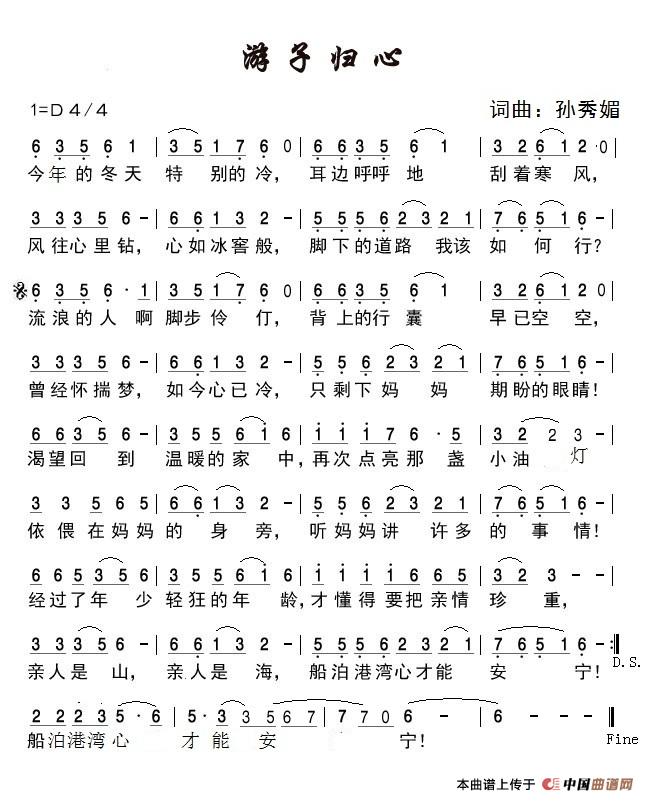 游子归心
1=D 4/4
词曲：孙秀媚
6 3 5 6 1 | 3 5 1 7 6 0 | 6 6 3 3 5 6 1 | 3 2 6 1 2·0 |
今年的冬天 特别的冷，耳边呼呼地 刮着寒风，
3 3 3 5 6 – | 6 6 1 3 2 – | 5 5 5 6 2 3 2 1 | 7 6 5 1 6 – |
风往心里钻，心如冰窖般，脚下的道路 我该如何行？
6 3 5 6 · 1 | 3 5 1 7 6 0 | 6 6 3 5 6 1 | 3 2 6 1 2 0 |
流浪的人啊脚步伶仃，背上的行囊 早已空空，
3 3 3 5 6 – | 6 6 1 3 2 – | 5 5 6 2 3 2 1 | 7 6 5 1 6 – |
曾经怀揣梦，如今心已冷，只剩下妈妈 期盼的眼睛！
6 6 3 5 6 – | 3 5 5 5 6 1 6 | 1 1 1 7 6 · 5 | 3 2 2 3 – |
渴望回到 温暖的家中，再次点亮那盏 小油灯
3 3 5 6 5 | 6 6 1 3 2 – | 5 5 5 6 2 3 2 1 | 7 6 5 1 6 – |
依偎在妈妈的身旁，听妈妈讲许多的事情！
6 6 5 3 5 6 | 3 5 5 5 6 1 6 | 1 1 1 1 6 6 5 | 3 2 3 – – |
经过了年少轻狂的年龄，才懂得要把亲情珍重，
3 3 3 5 6 – | 6 6 1 3 2 – | 5 5 5 6 2 3 2 1 | 7 6 5 1 6 – :‖
亲人是山，亲人是海，船泊港湾心才能安宁！
D.S.
2 2 2 3 5 · 6 | 5 · 5 3 3 5 6 7 | 7 7 0 6 – | 6 – – – ‖
船泊港湾心 才能安 宁！
Fine
本曲谱上传于 中国曲谱网